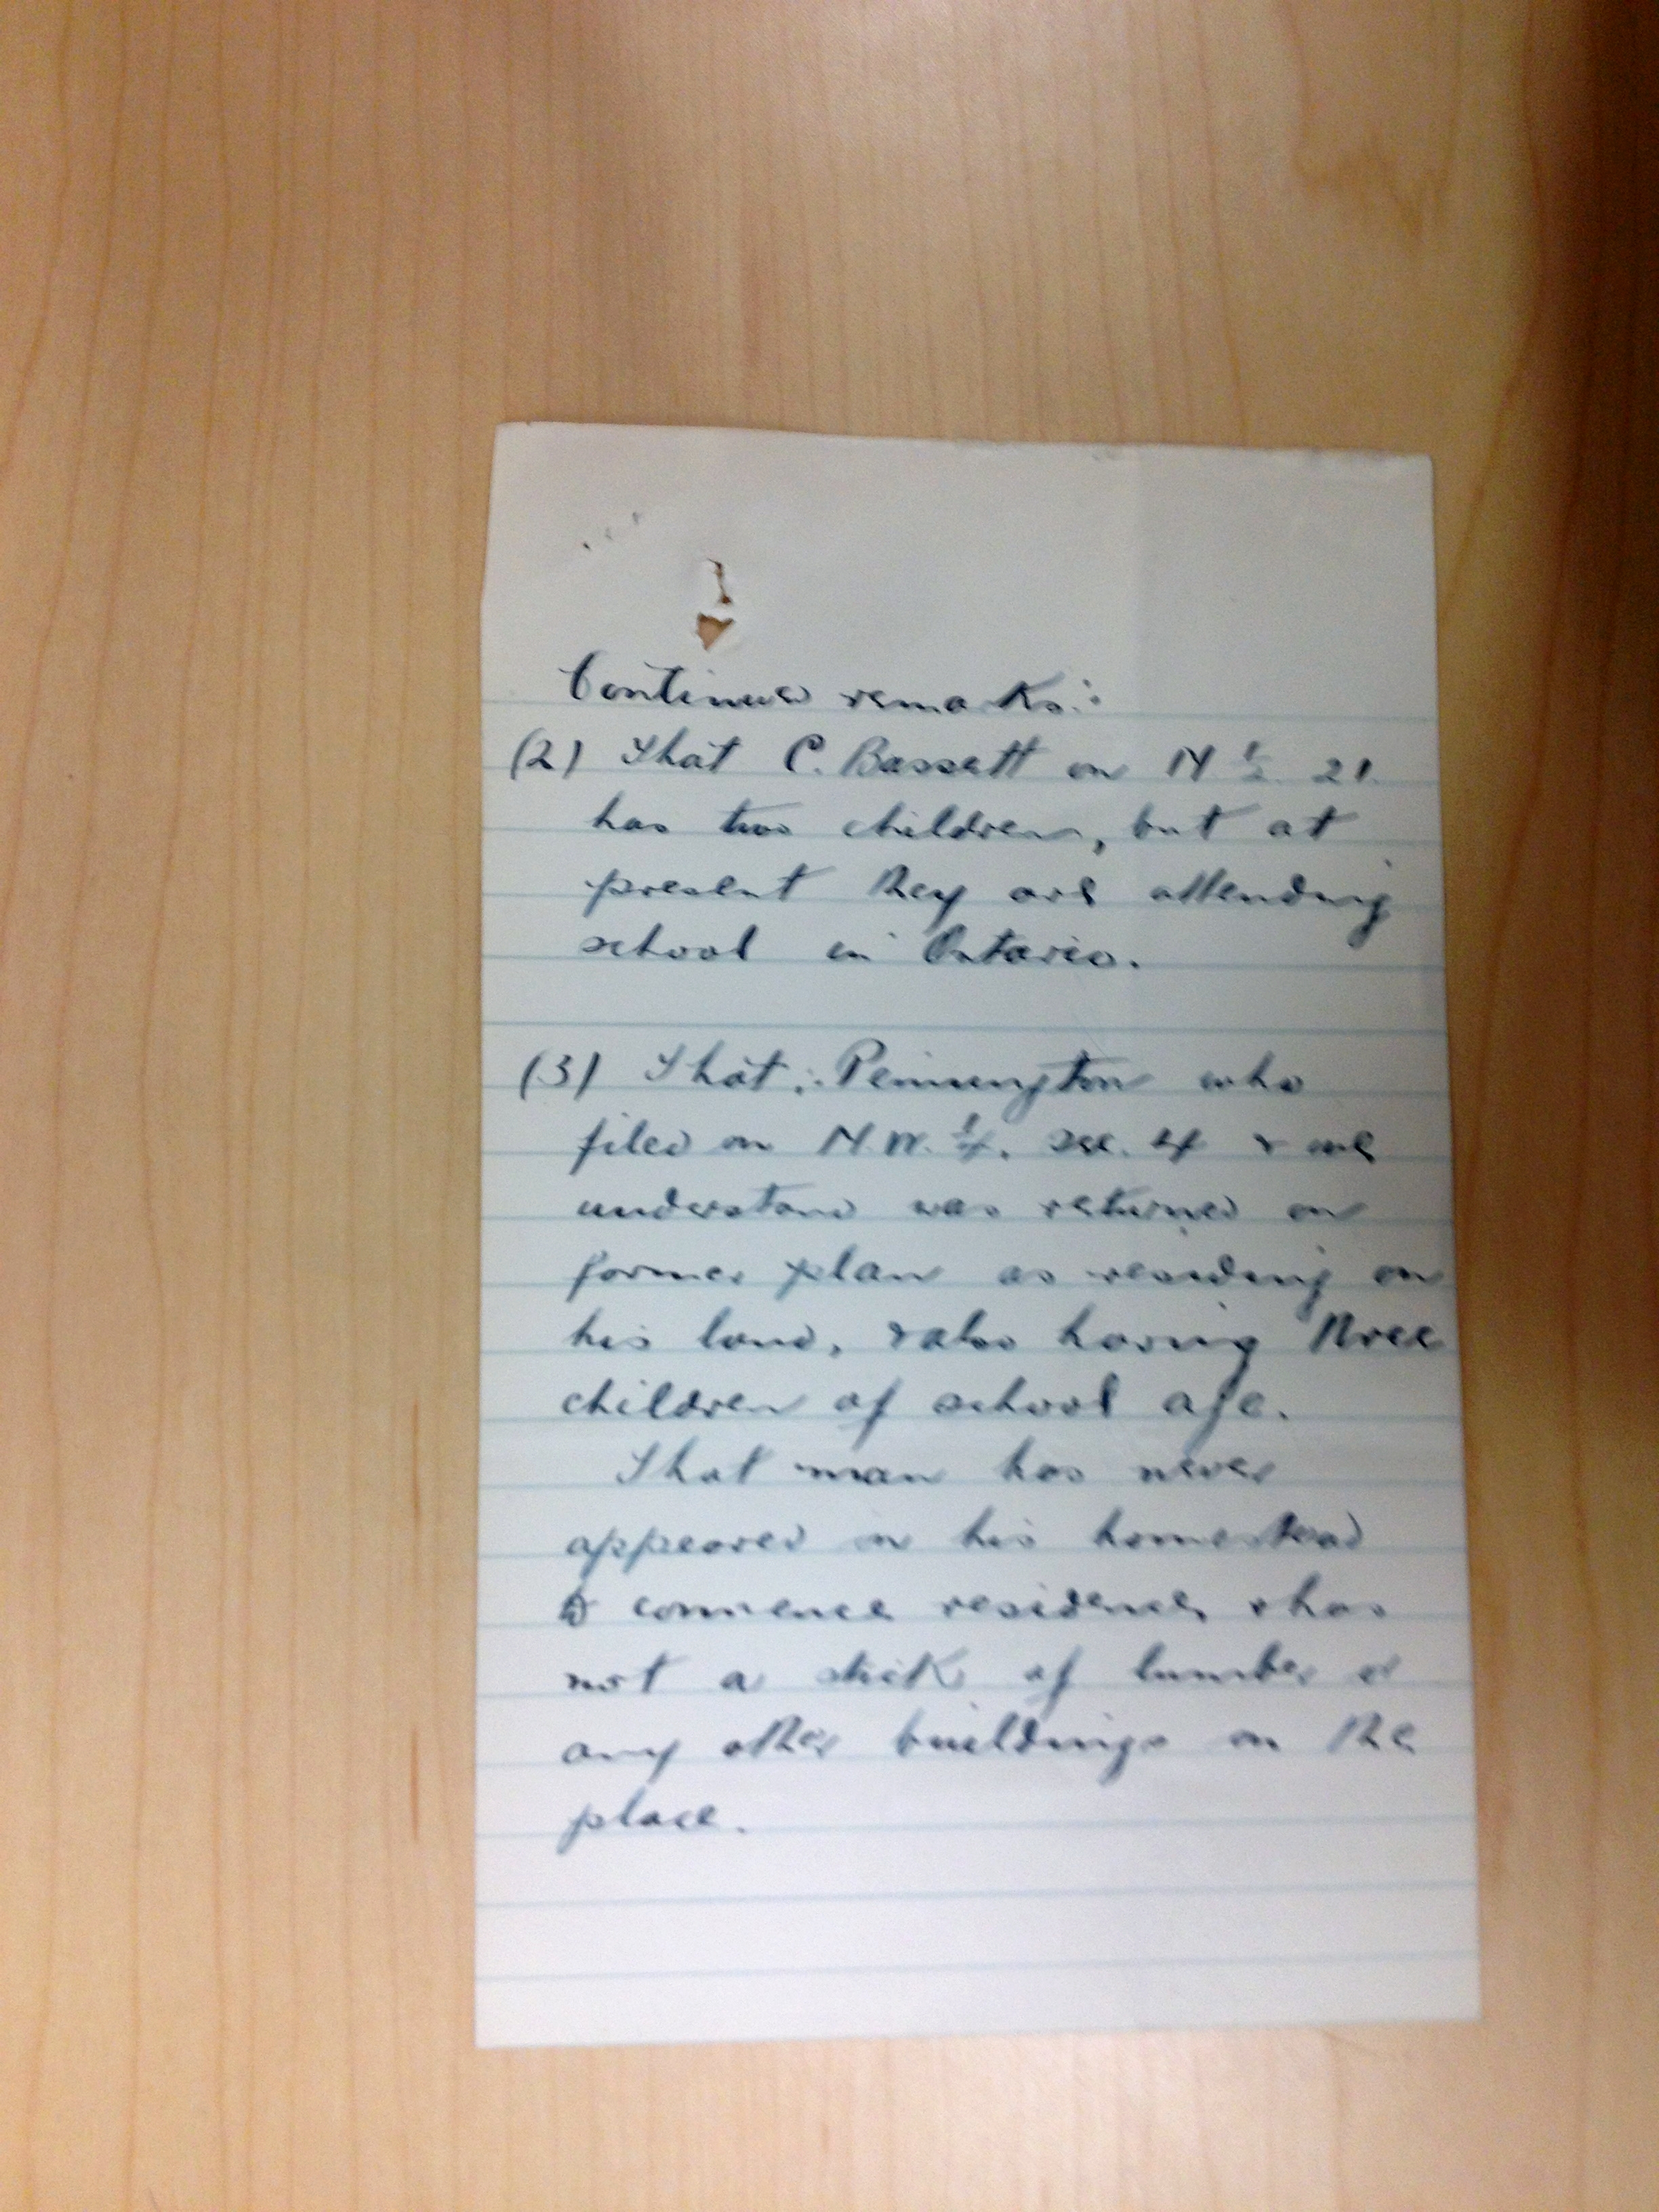 Continued remarks:
(2) That C. Bassett on N ½ 21.
has two children, but at
present they are attending
school in Ontario.
(3) That: Pennington who
filed on N.W. ¼. sec. 4 & we
understand was returned on
former plan as residing on
his land, & also having three
children of school age.
That man has never
appeared on his homestead
to commence residence, & has
not a stick of lumber or
any other buildings on the
place.